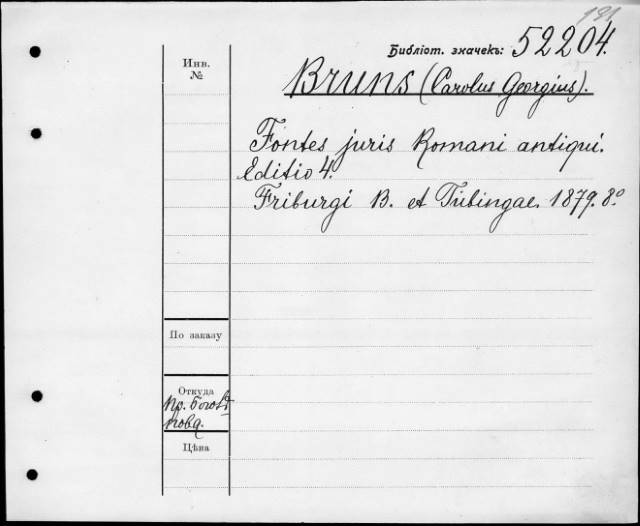 191
Библіот. значекъ: 52204.
Инв.
№
Bruns (Carolus Georgius).
Fontes juris Romani antiqui.
Editio 4.
Friburgi B. et Tubingae. 1879. 8º
По заказу
Откуда
Цѣна